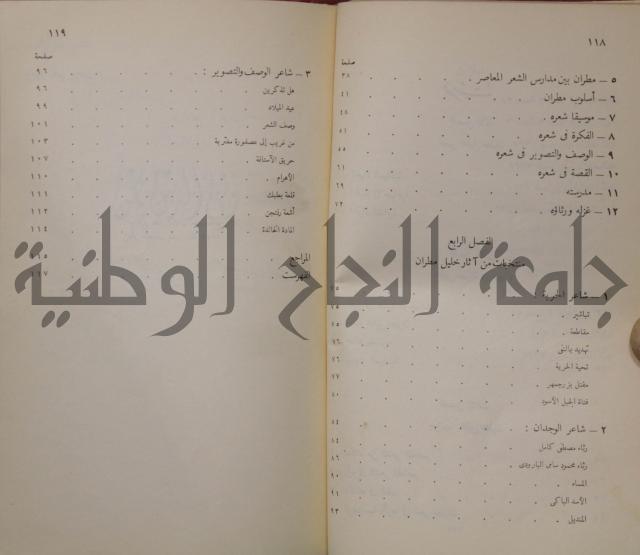 ١١٨
صفحة
٥ – مطران بين مدارس الشعر المعاصر ٣٨
٦ – أسلوب مطران ٤١
٧ – موسيقا شعره ٤٨
٨ – الفكرة فى شعره ٥١
٩ – الوصف والتصوير فى شعره ٥٥
١٠ – القصة فى شعره ٦١
١١ – مدرسته ٦٩
١٢ – غزله ورثاؤه ٧٢
الفصل الرابع
منتخبات من آثار خليل مطران
١ – شاعر الحرية ٧٥
تباشير ٧٥
مقاطعة ٧٥
تهديد بالنفى ٧٦
تحية الحرية ٧٦
مقتل بزرجمهر ٧٧
فتاة الجبل الأسود ٨٠
٢ – شاعر الوجدان : ٨٤
رثاء مصطفى كامل ٨٤
رثاء محمود سامى البارودى ٨٦
المساء ٩٠
الأسد الباكى ٩١
المنديل ٩٣
١١٩
صفحة
٣ – شاعر الوصف والتصوير : ٩٦
هل تذكرين ٩٦
عيد الميلاد ٩٩
وصف الشعر ١٠١
من غريب إلى عصفورة مغتربة ١٠٣
حريق الآستانة ١٠٧
الأهرام ١١٠
قلعة بعلبك ١١١
أشعة رنتجن ١١٢
المادة الخالدة ١١٤
المراجع ١١٥
الفهرست ١١٧
جامعة النجاح الوطنية